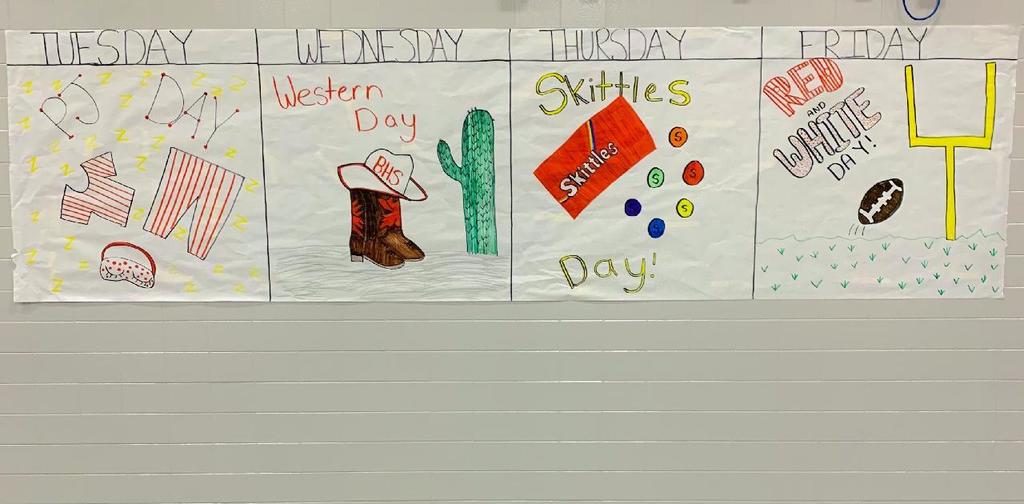 TUESDAY
PJ DAY
WEDNESDAY
Western
Day
BHS
THURSDAY
Skittles
Skittles
S
S
S
S
S
S
Day!
FRIDAY
RED
AND
WHITE
DAY!